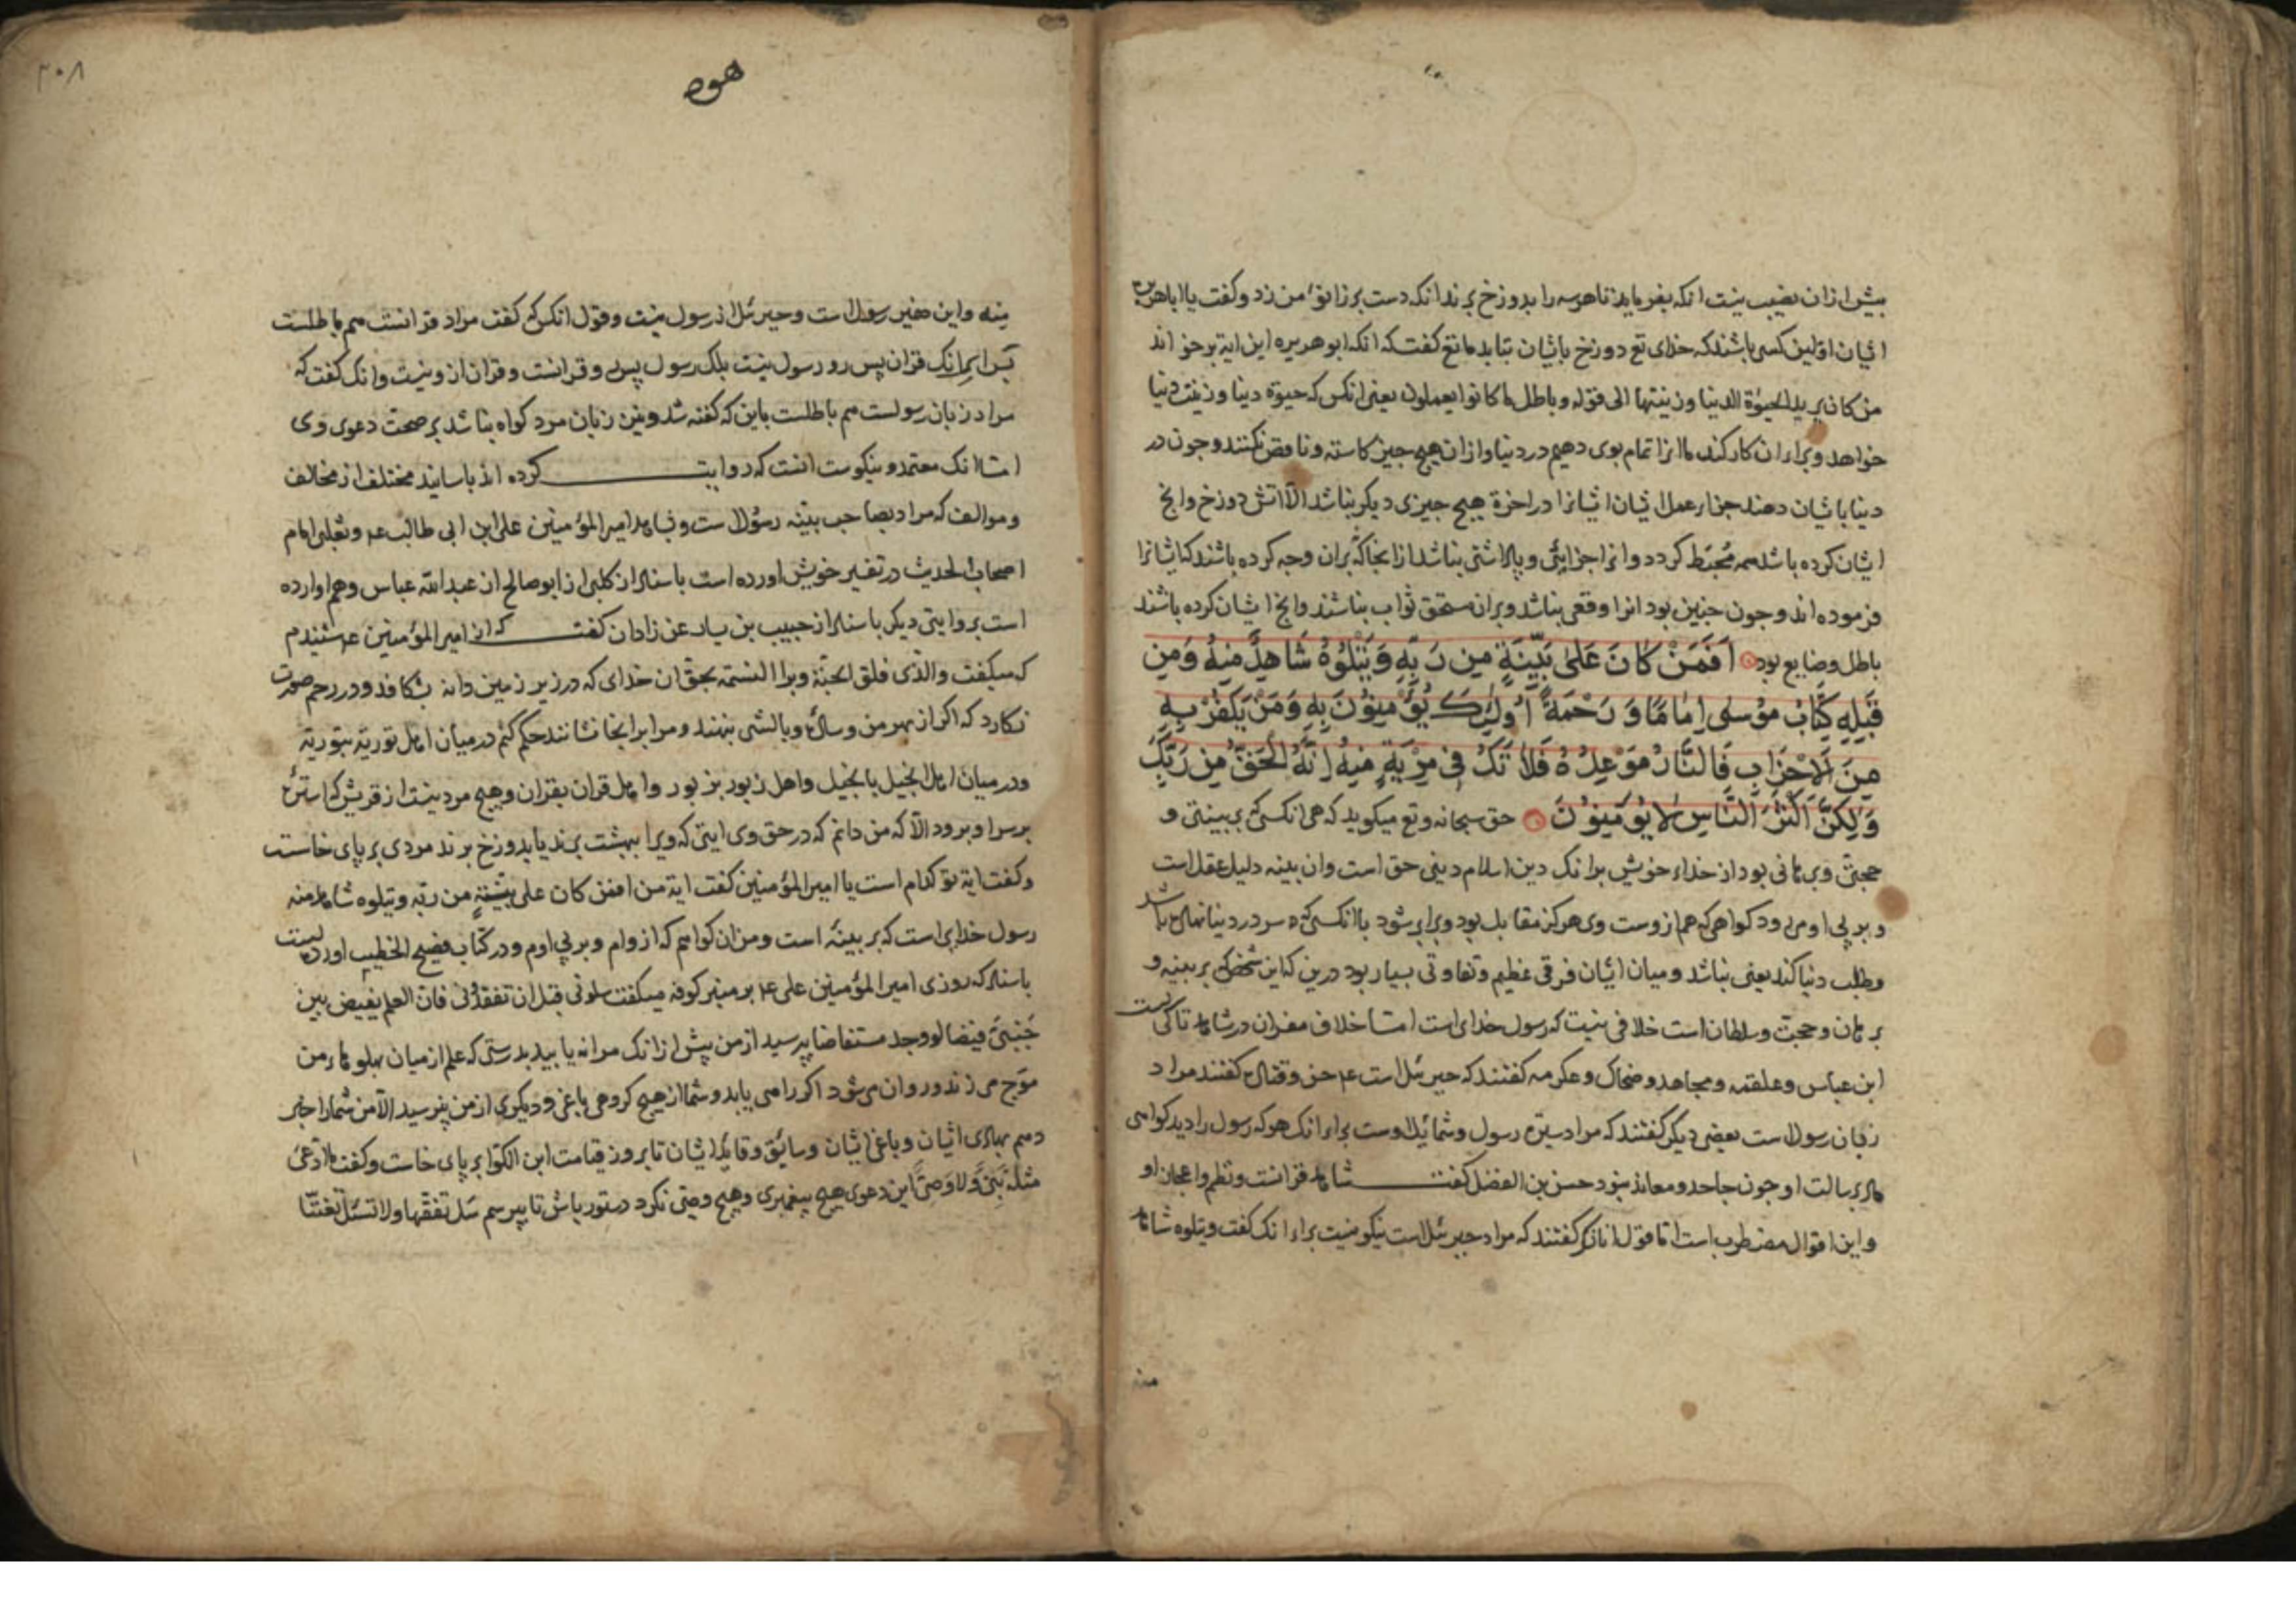 بیش ازان نصیب نیست انکه بفرماید تا هرسه را بدوزخ برند انکه دست بر زانوٴ من زد و کفت یا اباهریره
ایشان اولین کسی باشند که خدای تع دوزخ باشان بتابد مانع کفت که انکه ابوهریره این ایة برخواند
من کان یرید الحیوٰة الدنیا وزینتها الی قوله وباطل ما کانوا یعملون یعنی انکس که حیوة دنیا وزینت دنیا
خواهد وبراء ان کار کند ما انرا تمام بوی دهیم در دنیا وازان هیچ جیز کاسته وناقص نکنند وجون در
دنیا باشان دهند جزاء عمل ایشان ایشانرا در اخرة هیچ جیزی دیکر نباشد الّا اتش دوزخ وانج
ایشان کرده باشد همه مُحبَط کردد وانرا جزائی وپاداشتی نباشد از انجا که بران وجه کرده باشند که ایشانرا
فرموده اند وجون جنین بود انرا وقعی نباشد وبران مستحق ثواب نباشند وانج ایشان کرده باشند
باطل وضایع بود اَفَمَنْ كَانَ عَلیٰ بَیِّنَةٍ مِن رَبِّهِ وَیَتْلُوْهُ شَاهِدٌ مِنهُ وَمِن
قَبْلِهِ كِتَابُ مُوْسٰی اِمَامًا وَ رَحْمَةً اُولٰئِكَ یُؤْمِنُوْنَ بِهِ وَمَنْ یَكْفُرْ بِهِ
مِنَ الْاَحْزَابِ فَالنَّارُ مَوْعِدُهُ فَلَا تَكُ فِی مِرْیَةٍ مِنهُ اِنَّهُ الْحَقُّ مِن رَبِّكَ
وَلٰكِنَّ اَكْثَرَ النَّاسِ لَا یُؤْمِنُوْنَ حق سبحانه وتع میکوید که هی انکسی که بر بینتی و
حجتی وبرهانی بود از خداء خویش برانک دین اسلام دینی حق است وان بینه دلیل عقل است
و بر پی او می رود کواهی که هم ازوست وی هرکز مقابل بود وبرابر شود با انکسی که سر در دنیا نهاده باشد
وطلب دنیا کند یعنی نباشد ومیان ایشان فرقی عظیم وتفاوتی بسیار بود درین که این شخص که بر بینه و
برهان وحجت وسلطان است خلافی نیست که رسول خدای است امّا خلاف مفسران در شاهد تا کیست
ابن عباس وعلقمه ومجاهد وضحاک وعکرمه کفتند که جبرئیل است ع۴ حسن وقتاده کفتند مراد
زبان رسول است بعضی دیکر کفتند که مراد سیرة رسول وشمائل اوست براء انک هرکه رسول را دید کواهی
داد برسالت او جون جاحد ومعاند نبود حسن بن الفضل کفت شاهد قرانست ونظم واعجاز او
واین اقوال مضطرب است اما قول انانکه کفتند که مراد جبرئیل است نیکو نیست براء انک کفت ویتلوه شاهد
منه
هود
۳۰۸
مِنه واین ضمیر رسول است وجبرئیل از رسول نیست وقول انکس که کفت مراد قرانست هم باطلست
براء انک قران پس رو رسول نیست بلک رسول پس رو قرانست وقران ازو نیست وانک کفت که
مراد زبان رسولست هم باطلست باین که کفته شد ونیز زبان مرد کواه نباشد بر صحت دعوی وی
امّا انک معتمد ونیکوست انست که روایت کرده اند باسانید مختلف از مخالف
وموالف که مراد بصاحب بینه رسول است وشاهد امیرالمؤمنین علی ابن ابی طالب ع۴ وثعلبی امام
اصحاب الحدیث در تفسیر خویش اورده است باسناد از کلبی از ابوصالح از عبدالله عباس وهم اوارده
است بروایتی دیکر باسناد از حبیب بن یسار عن زادان کفت که از امیرالمؤمنین ع۴ شنیدم
که میکفت والذی فلق الحبّة وبرا النسمة بحق ان خدای که در زیر زمین دانه بشکافد ودر رحم صورت
نکارد که اکر از بهر من وسادة وبالشی بنهند ومرا برانجا نشانند حکم کنم در میان اهل توریة بتوریة
ودر میان اهل انجیل بانجیل واهل زبور بزبور واهل قران بقران وهیچ مرد نیست از قریش که استرهٔ
بر سر او برود الّا که من دانم که در حق وی ایتی که ویرا ببهشت برند یا بدوزخ برند مردی بر پای خاست
وکفت ایة تو کدام است یا امیرالمؤمنین کفت ایة من افمن کان علی بیّنةٍ من ربّه ویتلوه شاهد منه
رسول خدای است که بر بینهٔ است ومن ان کواهم که ازوام وبر پی اوم ودر کتاب فصیح الخطیب اورده است
باسناد که روزی امیرالمؤمنین علی ع۴ بر منبر کوفه میکفت سلونی قبل ان تفقدونی فان العلم یفیض بین
جَنبَیَّ فیضا لو وجد مستفاضا بپرسید از من پیش ازانک مرا نه یابید بدرستی که علم از میان پهلوهاء من
موج می زند وروان می شود اکر راهی یابد وشما از هیچ کروهی باغی ودیکری از من نپرسید الّا من شمارا خبر
دهم بهادی ایشان وباغی ایشان وسائق وقاید ایشان تا بروز قیامت ابن الکوّا بر پای خاست وکفت ما ادّعیٰ
مثله نَبِیٌّ وَلا وَصِیٌّ این دعوی هیچ پیغمبری وهیچ وصی نکرد دستور باش تا بپرسم سَل تفقّها ولا تسئل تعنّتا